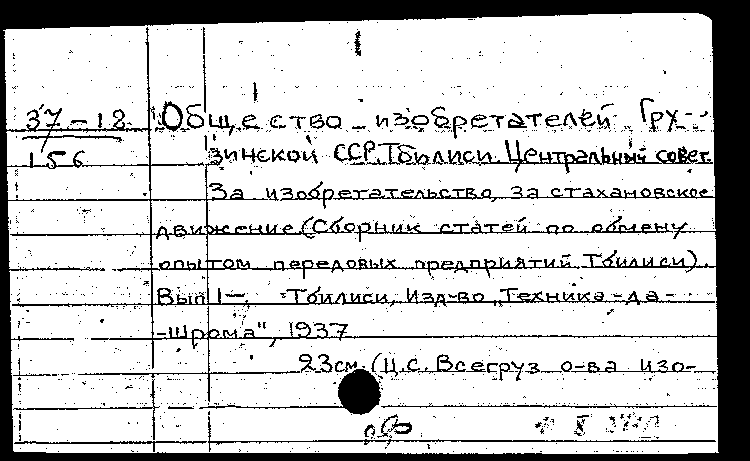 37-18 Общество изобретателей Гру-
156 зинской ССР. Тбилиси. Центральный совет.
За изобретательство, за стахановское
движение (Сборник статей по обмену
опытом передовых предприятий Тбилиси).
Вып 1-. Тбилиси, Изд-во „Техника-да-
-Шрома", 1937
23см. (Ц.С. Всегруз о-ва изо-